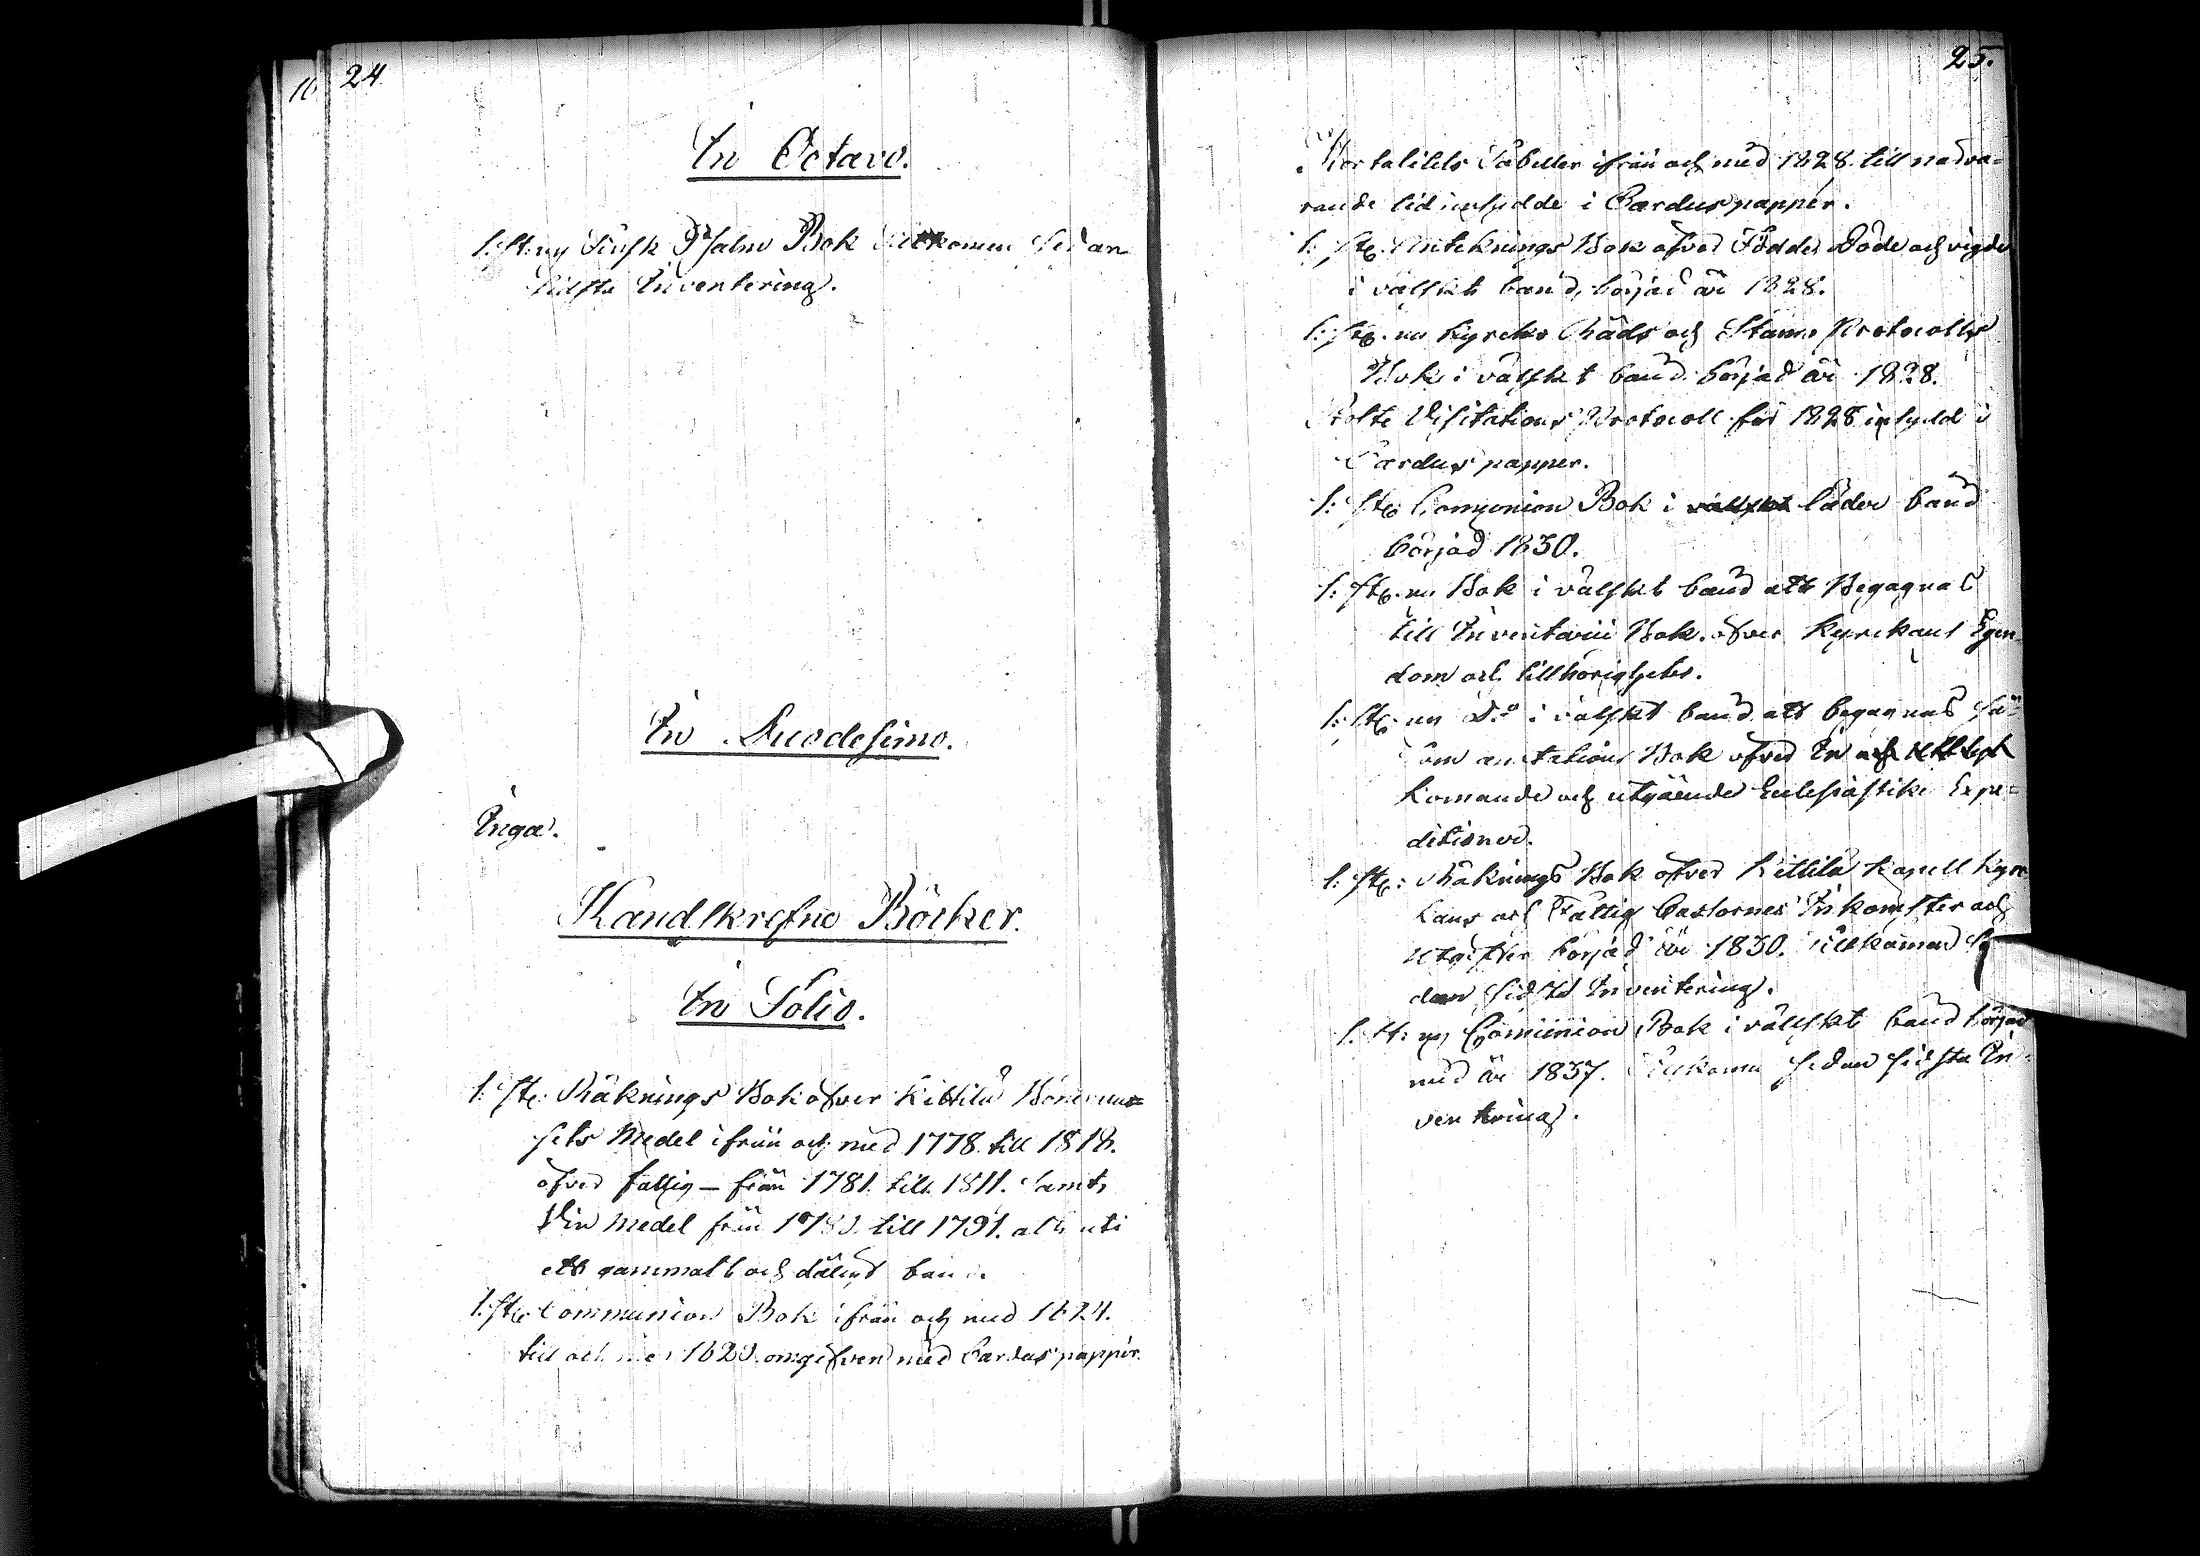 24
In Octavo.
1. st: ny Finsk Psalm Bok tillkommen sedan
sidsta Inventering.
In Duodesimo.
Inga.
Handskrefne Böcker.
In Folio.
1. st: Räknings Bok öfver Kittilä Bönehu=
sets Medel ifrån och med 1778. till 1818.
öfver fattig – från 1781. till 1811. samt
Vin Medel från till 1791. alt uti
ett gammalt och dåligt band.
1. st: Communion Bok ifrån och med 1824.
till och med omgifven med Cardus papper.
25.
Mortalitets Tabeller ifrån och med 1828. till nadva=
rande tid insydde i Cardus papper.
1: st: Antecknings Bok öfver Födde, Döde och vigde
i välskt band, börjad år 1828.
1: st: ny Kyrcko Råds och Stämo Protocolls
Bok i välskt band börjad år 1828.
Visitations Protocoll för 1828 insydd i
Cardus papper.
1: st: Comunion Bok i välskt läder band
börjad 1830.
1: st: ny Bok i välskt band att Begagnas
till Inventarii Bok öfver Kyrckans Egen
dom och tillhörigheter.
1: st: ny D:o i välskt band att begagnas så=
som anotations Bok öfver In och
komande och utgående Eclesiastike Expe=
ditioner.
1: st: Räknings Bok öfver Kittilä Kapell Kyrc
kans och Fattig Cassornes Inkomster och
utgifter börjad år 1830. tillkommen se
dan sidsta Inventering.
1. st: ny Comunion Bok i välskt band börjad
med år 1837. tillkommen sedan sidsta In=
ventering.